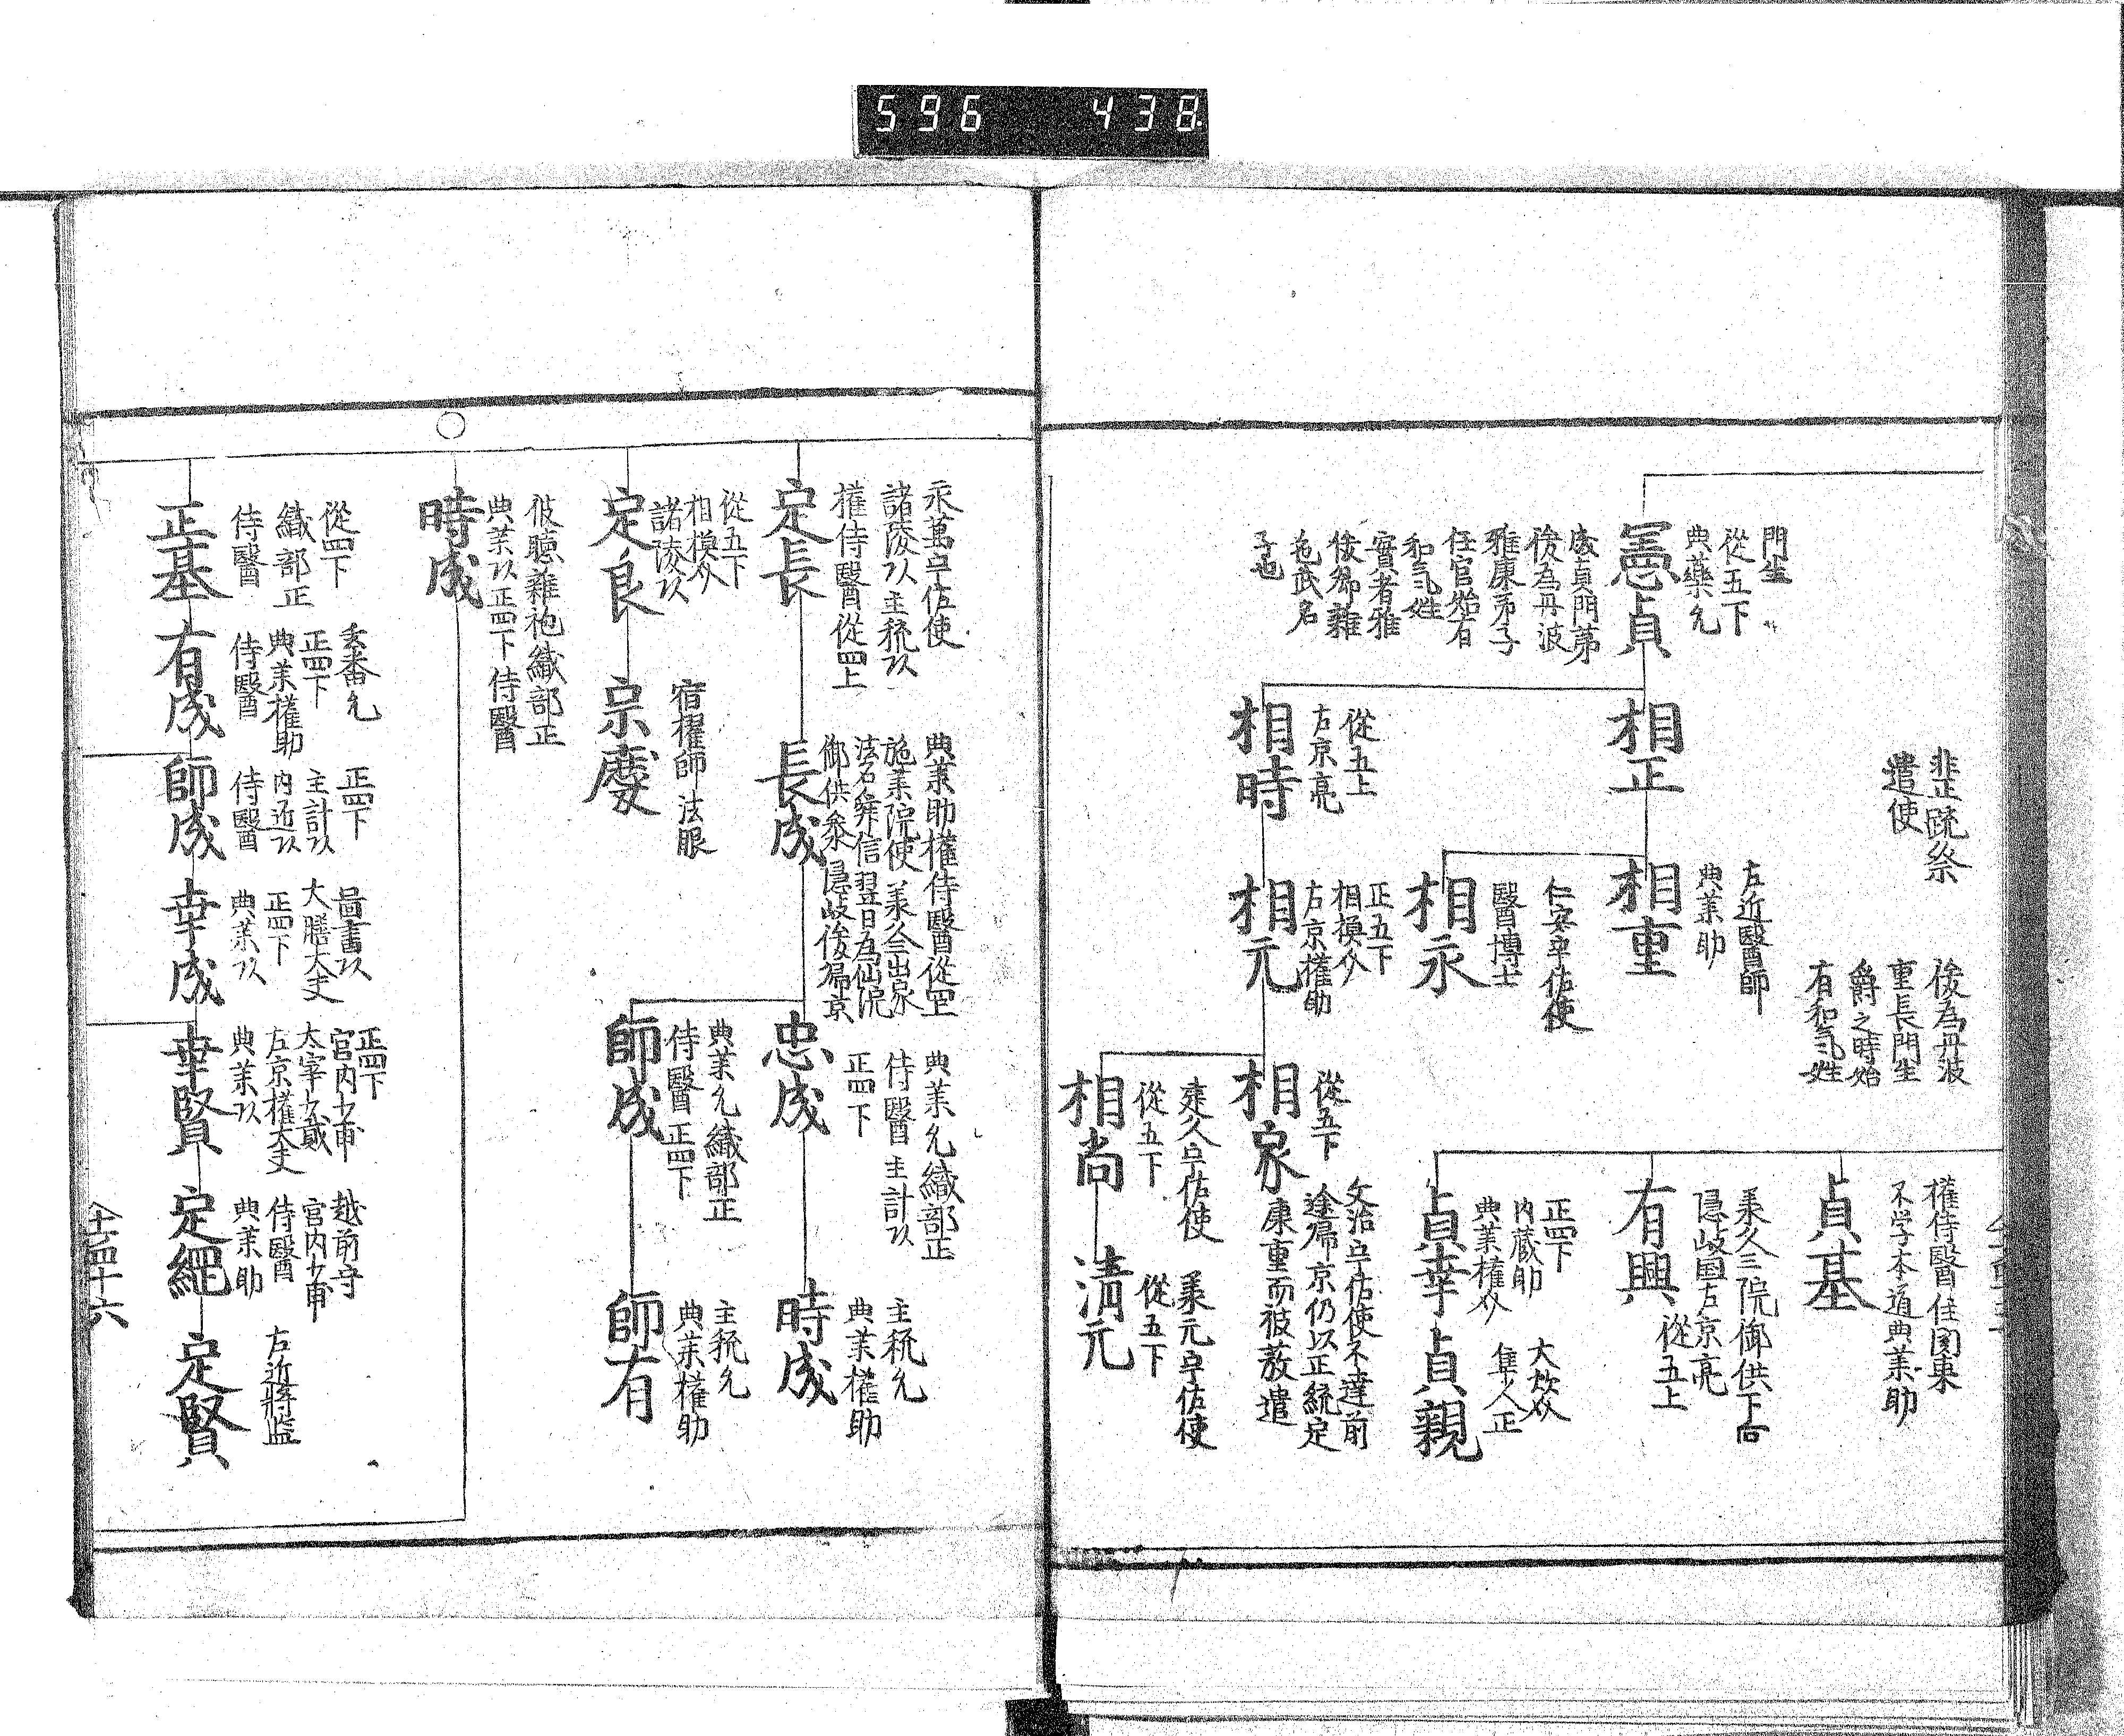 596 438
韭蹠祭
遣使
後為丹波
重長門生
爵之時始
有和氣姓
權侍醫住関東
不学本道典薬助
貞基
承久三院御供下向
隠岐国左京亮
從五上
有興
正四下
内蔵助
典薬權介
貞幸
大炊介
隼人正
貞親
門生
從五下
典藥允
憲貞
成貞門弟
後為丹波
雅康弟子
任官始有
和氣姓
實者雅
後郷雑
色武名
子也
相正
左近醫師
典薬助
相重
仁安宇佐使
醫博士
相永
從五上
右京亮
相時
正五下
相模介
右京權助
相元
從五下
相家
文治宇佐使不達前
途帰京仍以正統定
康重而被放遣
建久宇佐使
從五下
相尚
承元宇佐使
從五下
清元
永萬宇佐使
諸陵以主税以
權侍醫從四上
定長
典薬助權侍醫從四上
施薬院使 承久三出家
法名舜信翌日為仙洞
御供参隠岐後帰京
長成
典薬允織部正
侍醫 主計以
正四下
忠成
主税允
典薬權助
時成
典薬允織部正
侍醫 正四下
師成
主税允
典薬權助
師有
從五下
相模介
諸陵以
定良
宿權師 法眼
宗慶
彼聴雜袍織部正
典薬以正四下侍醫
時成
從四下
織部正
侍醫
正基
玄番允
正四下
典薬權助
侍醫
有成
正四下
主計以
内匠以
侍醫
師成
昌書以
大膳大夫
正四下
典薬以
幸成
正四下
宮内少甫
太宰少貳
左京權大夫
典薬以
幸賢
越前守
宮内少甫
侍醫
典薬助
定繩
左近將監
定賢
仝四十六